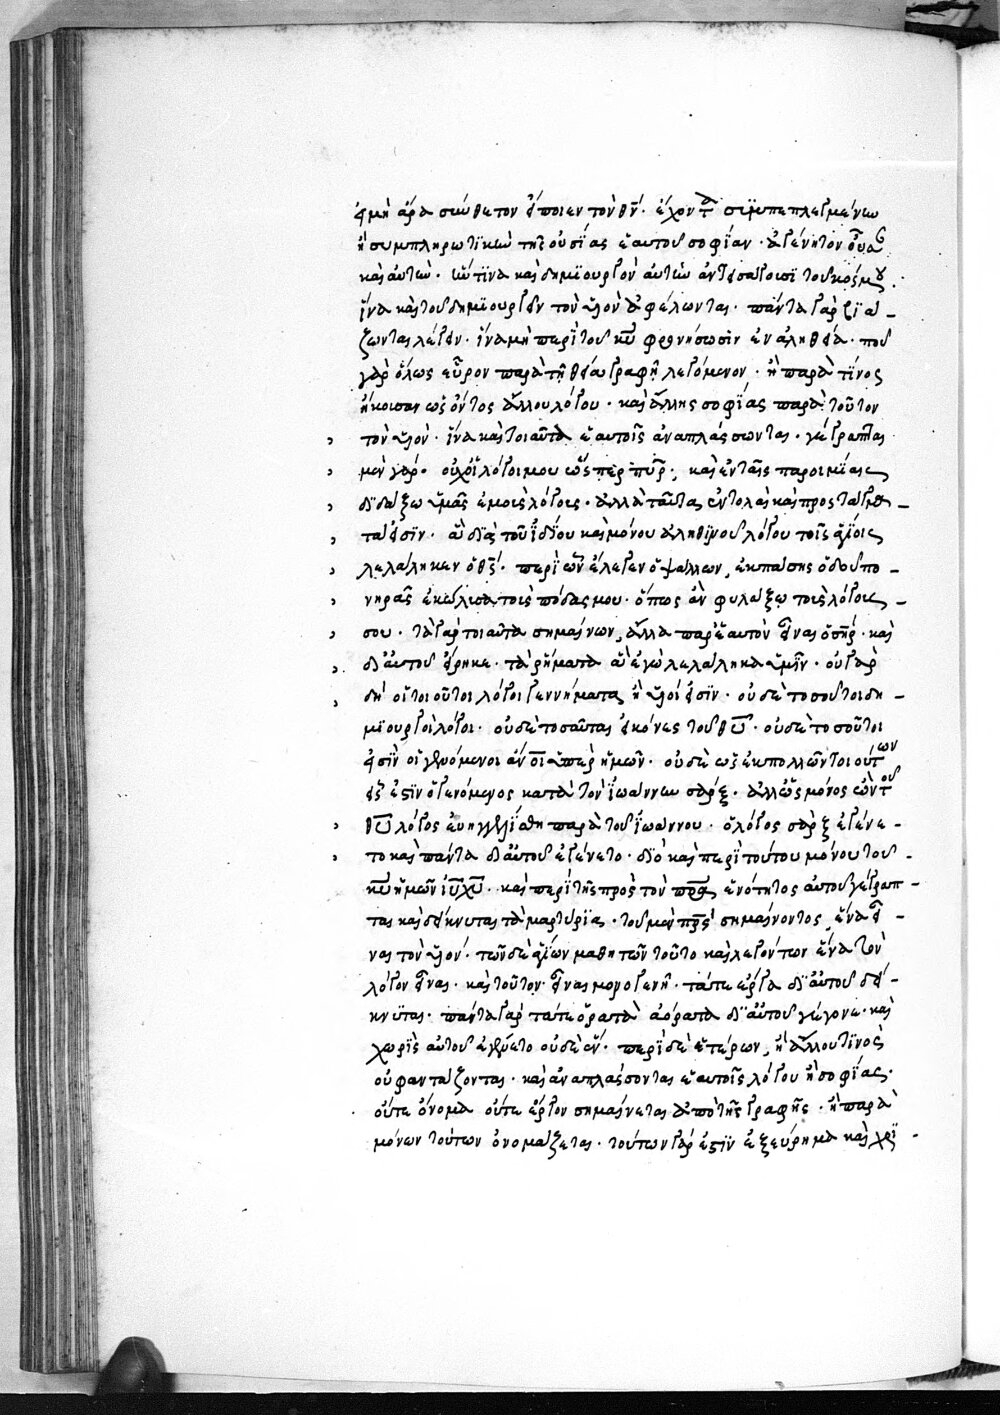 εἰ μὴ ἄρα σύνθετον εἴποιεν τὸν θν̄· ἔχοντα συμπεπλεγμένην
ἢ συμπληρωτικὴν τῆς οὐσίας ἑαυτοῦ σοφίαν· ἀγένητον οὖσαν
καὶ αὐτήν· ἥντινα καὶ δημιουργὸν αὐτὴν ἀντεισάγουσι τοῦ κόσμου·
ἵνα καὶ τοῦ δημιουργεῖν τὸν υἱὸν ἀφέλωνται· πάντα γὰρ βιά-
ζονται λέγειν· ἵνα μὴ περὶ τοῦ κῡ φρονήσωσιν ἐν ἀληθείᾳ· ποῦ
γὰρ ὅλως εὗρον παρὰ τῇ θείᾳ γραφῇ λεγόμενον· ἢ παρὰ τίνος
ἤκουσαν ὡς ὄντος ἄλλου λόγου· καὶ ἄλλης σοφίας παρὰ τοῦτον
τὸν υἱὸν· ἵνα καὶ τοιαῦτα ἑαυτοῖς ἀναπλάσωνται· γέγραπται
μὲν γάρ· οὐχὶ οἱ λόγοι μου ὥσπερ πῦρ· καὶ ἐν ταῖς παροιμίαις
διδάξω ὑμᾶς ἐμοὺς λόγους· ἀλλὰ ταῦτα ἐντολαὶ καὶ προστάγμα-
τά εἰσιν· ἃ διὰ τοῦ ἰδίου καὶ μόνου ἀληθινοῦ λόγου τοῖς ἁγίοις
λελάληκεν ὁ θσ̄· περὶ ὧν ἔλεγεν ὁ ψάλλων, ἐκ πάσης ὁδοῦ πο-
νηρᾶς ἐκώλυσα τοὺς πόδας μου· ὅπως ἂν φυλάξω τοὺς λόγους
σου· τὰ γὰρ τοιαῦτα σημαίνων, ἄλλα παρ' ἑαυτὸν εἶναι ὁ σηρ̄· καὶ
δι' αὐτοῦ εἴρηκε· τὰ ῥήματα ἃ ἐγὼ λελάληκα ὑμῖν· οὐ γὰρ
δὴ οἱ τοιοῦτοι λόγοι γεννήματα ἢ υἱοί εἰσιν· οὐδὲ τοσοῦτοι δη-
μιουργοὶ λόγοι· οὐδὲ τοσαῦται εἰκόνες τοῦ θῡ· οὐδὲ τοσοῦτοι
εἰσὶν οἱ γενόμενοι ἄνοι ὑπὲρ ἡμῶν· οὐδὲ ὡς ἐκ πολλῶν τοιούτων
εἷς ἐστὶν ὁ γενόμενος κατὰ τὸν ἰωάννην σάρξ· ἀλλ' ὡς μόνος ὢν τοῦ
θῡ λόγος εὐηγγελίσθη παρὰ τοῦ ἰωάννου· ὁ λόγος σὰρξ ἐγένε-
το καὶ πάντα δι' αὐτοῦ ἐγένετο· διὸ καὶ περὶ τούτου μόνου τοῦ
κῡ ἡμῶν ιῡ χῡ· καὶ περὶ τῆς πρὸς τὸν πρᾱ ἑνότητος αὐτοῦ γέγραπ-
ται καὶ δείκνυται τὰ μαρτύρια· τοῦ μὲν πρσ̄ σημαίνοντος, ἕνα εἶ-
ναι τὸν υἱόν· τῶν δὲ ἁγίων μαθητῶν τοῦτο καὶ λεγόντων ἕνα τὸν
λόγον εἶναι· καὶ τοῦτον εἶναι μονογενῆ· τά τε ἔργα δι' αὐτοῦ δεί-
κνυται· πάντα γὰρ τά τε ὁρατὰ ἀόρατα δι' αὐτοῦ γέγονε· καὶ
χωρὶς αὐτοῦ ἐγένετο οὐδὲ ἕν· περὶ δὲ ἑτέρων, ἢ ἄλλου τινὸς
οὐ φαντάζονται· καὶ ἀναπλάσσονται ἑαυτοῖς λόγου ἢ σοφίας·
οὔτε ὄνομα οὔτε ἔργον σημαίνεται ἀπὸ τῆς γραφῆς· ἢ παρὰ
μόνων τούτων ὀνομάζεται· τούτων γάρ ἐστιν ἐξεύρημα καὶ χρι-